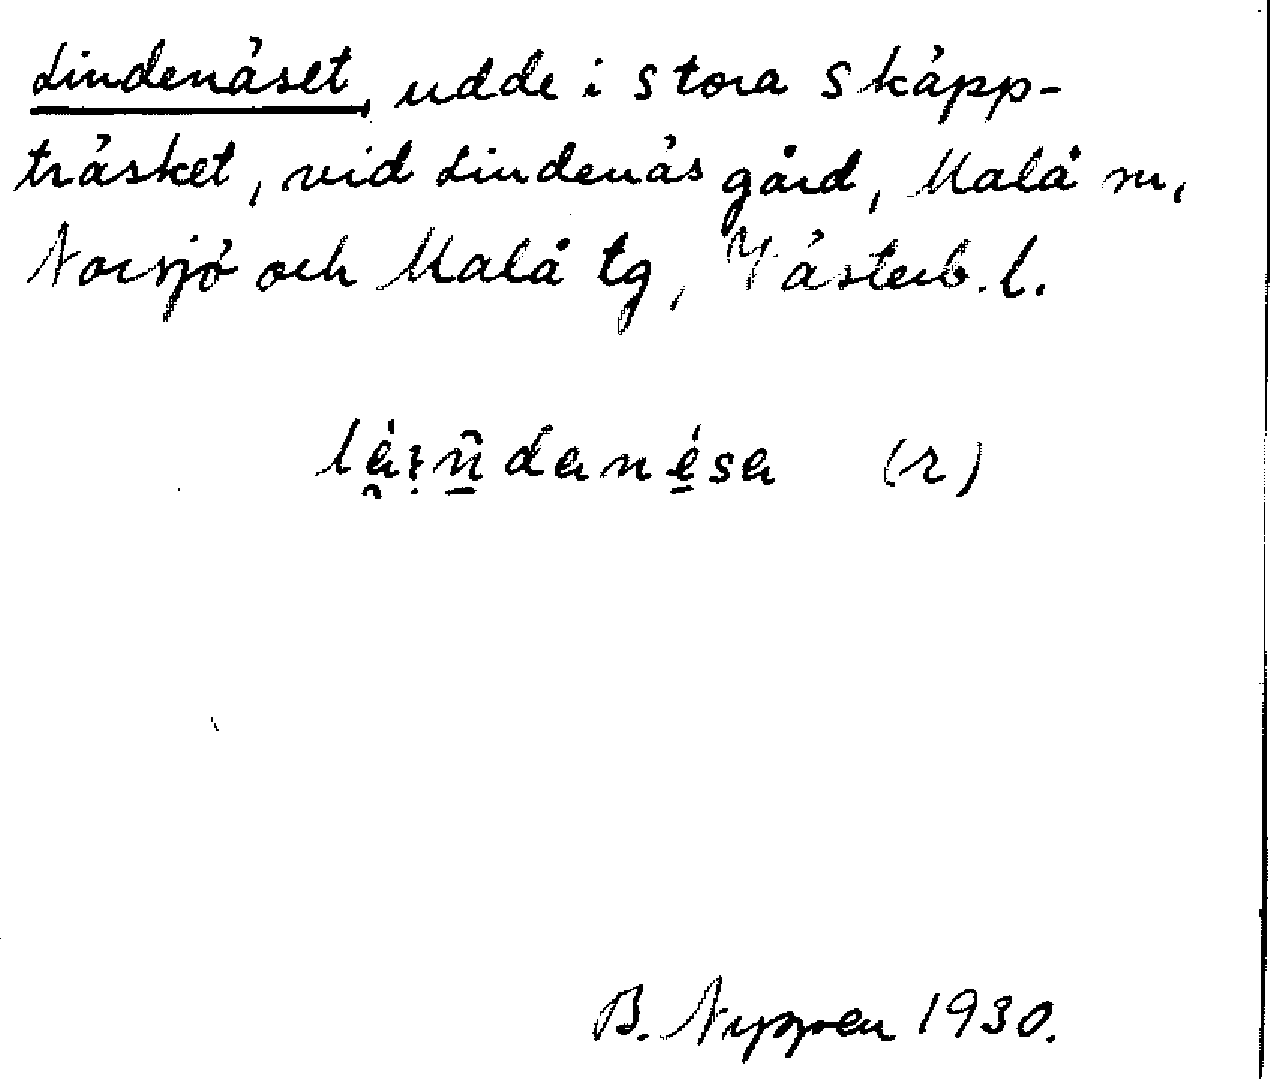 Lindenäset, udde i Stora Skäpp-
träsket, vid Lindenäs gård, Malå sn,
Norsjö och Malå tg, Västerb. l.
(r)
B. Nyppen 1930.